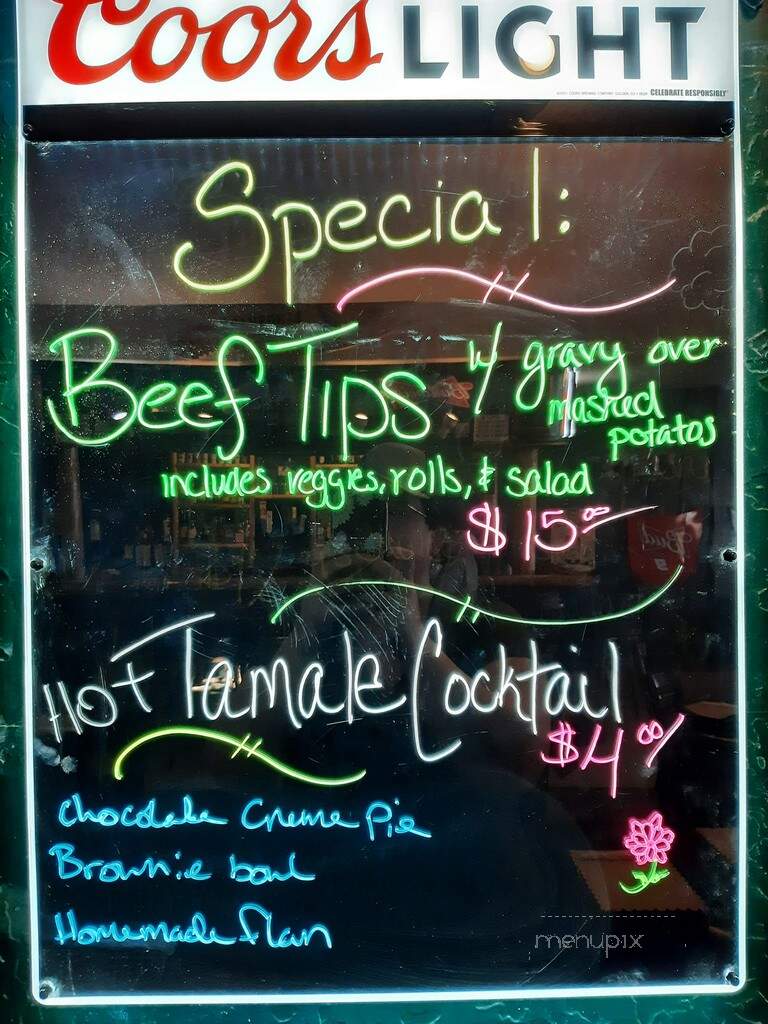 Coors LIGHT
CELEBRATE RESPONSIBLY
Special:
Beef Tips w/ gravy over
mashed
potatos
includes veggies, rolls, & salad
$15.00
Hot Tamale Cocktail
$4.00
Chocolate Creme Pie
Brownie bowl
Homemade flan
menupix